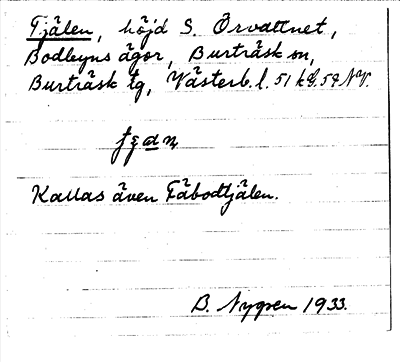 Tjälen, höjd S. Örvattnet,
Bodbyns ägor, Burträsk sn,
Burträsk tg, Västerb. l. 51 k G. 59 NV.
Kallas även Fäbodtjälen.
B. Nygren 1933.